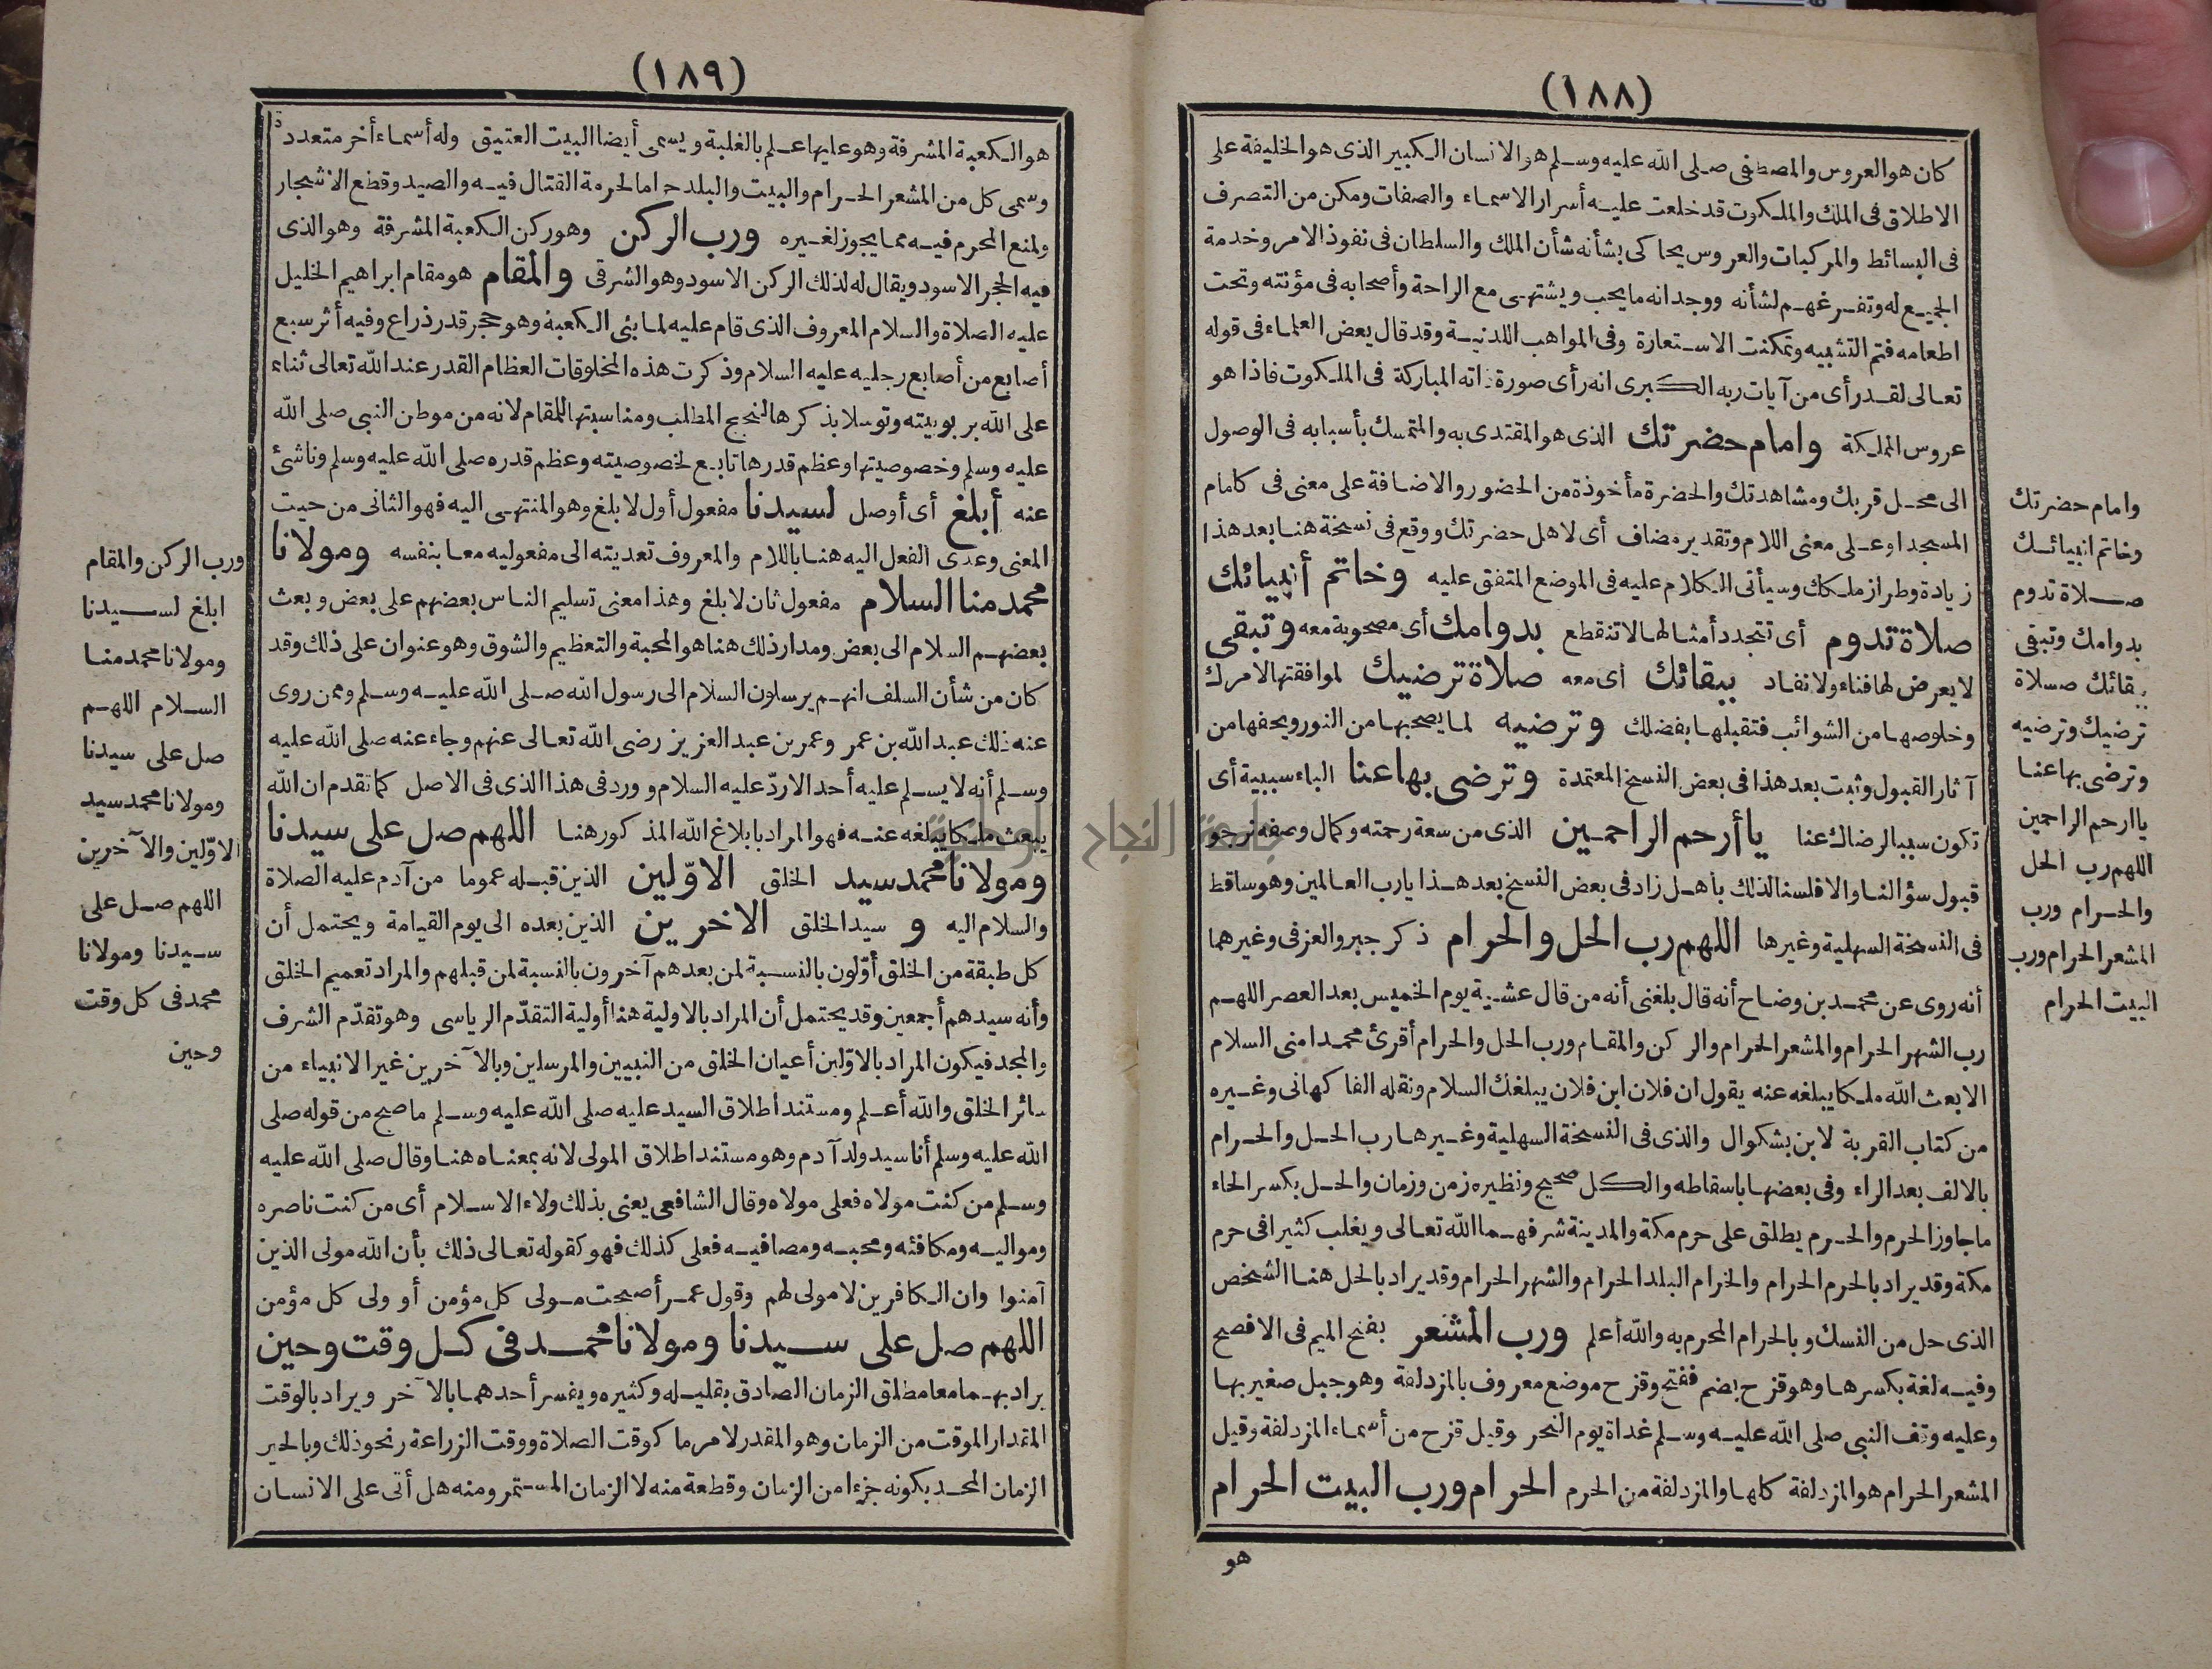 (١٨٨)
كان هو العروس والمصطفى صلى الله عليه وسلم هو الانسان الكبير الذى هو الخليفة على
الاطلاق فى الملك والملكوت قد خلعت عليه أسرار الاسماء والصفات ومكن من التصرف
فى البسائط والمركبات والعروس يحاكى بشأنه شأن الملك والسلطان فى نفوذ الامر وخدمة
الجميع له وتفرغهم لشأنه ووجدانه ما يحب ويشتهى مع الراحة وأصحابه فى مؤنته وتحت
اطعامه فتم التشبيه وتمكنت الاستعارة وفى المواهب اللدنية وقد قال بعض العلماء فى قوله
تعالى لقد رأى من آيات ربه الكبرى انه رأى صورة ذاته المباركة فى الملكوت فاذا هو
عروس المملكة وامام حضرتك الذى هو المقتدى به والمتمسك بأسبابه فى الوصول
الى محل قربك ومشاهدتك والحضرة مأخوذة من الحضور والاضافة على معنى فى كامام
المسجد او على معنى اللام وتقدير مضاف أى لاهل حضرتك ووقع فى نسخة هنا بعد هذا
زيادة وطراز ملكك وسيأتى الكلام عليه فى الموضع المتفق عليه وخاتم أنبيائك
صلاة تدوم أى تتجدد أمثالها لا تنقطع بدوامك أى مصحوبة معه وتبقى
لا يعرض لها فناء ولا نفاد ببقائك أى معه صلاة ترضيك لموافقتها لامرك
وخلوصها من الشوائب فتقبلها بفضلك وترضيه لما يصحبها من النور ويحفها من
آثار القبول وثبت بعد هذا فى بعض النسخ المعتمدة وترضى بها عنا الباء سببية أى
تكون سببا لرضاك عنا يا أرحم الراحمين الذى من سعة رحمته وكمال وصفه نرجو
قبول سؤالنا والا فلسنا لذلك بأهل زاد فى بعض النسخ بعد هذا يا رب العالمين وهو ساقط
فى النسخة السهلية وغيرها اللهم رب الحل والحرام ذكر جبر والعزفى وغيرهما
أنه روى عن محمد بن وضاح أنه قال بلغنى أنه من قال عشية يوم الخميس بعد العصر اللهم
رب الشهر الحرام والمشعر الحرام والركن والمقام ورب الحل والحرام أقرئ محمدا منى السلام
الا بعث الله ملكا يبلغه عنه يقول ان فلان ابن فلان يبلغك السلام ونقله الفاكهانى وغيره
من كتاب القربة لابن بشكوال والذى فى النسخة السهلية وغيرها رب الحل والحرام
بالالف بعد الراء وفى بعضها باسقاطه والكل صحيح ونظيره زمن وزمان والحل بكسر الحاء
ما جاوز الحرم والحرم يطلق على حرم مكة والمدينة شرفهما الله تعالى ويغلب كثيرا فى حرم
مكة وقد يراد بالحرم الحرام والحرام البلد الحرام والشهر الحرام وقد يراد بالحل هنا الشخص
الذى حل من النسك وبالحرام المحرم به والله أعلم ورب المشعر بفتح الميم فى الافصح
وفيه لغة بكسرها وهو قزح بضم ففتح وقزح موضع معروف بالمزدلفة وهو جبل صغير بها
وعليه وقف النبى صلى الله عليه وسلم غداة يوم النحر وقيل قزح من أسماء المزدلفة وقيل
المشعر الحرام هو المزدلفة كلها والمزدلفة من الحرم الحرام ورب البيت الحرام
هو
وامام حضرتك
وخاتم انبيائك
صلاة تدوم
بدوامك وتبقى
ببقائك صلاة
ترضيك وترضيه
وترضى بها عنا
يا ارحم الراحمين
اللهم رب الحل
والحرام ورب
المشعر الحرام ورب
البيت الحرام
(١٨٩)
هو الكعبة المشرفة وهو عليها علم بالغلبة ويسمى أيضا البيت العتيق وله أسماء أخر متعددة
وسمى كل من المشعر الحرام والبيت والبلد حراما لحرمة القتال فيه والصيد وقطع الاشجار
ولمنع المحرم فيه مما يجوز لغيره ورب الركن وهو ركن الكعبة المشرفة وهو الذى
فيه الحجر الاسود ويقال له لذلك الركن الاسود وهو الشرقى والمقام هو مقام ابراهيم الخليل
عليه الصلاة والسلام المعروف الذى قام عليه لما بنى الكعبة وهو حجر قدر ذراع وفيه أثر سبع
أصابع من أصابع رجليه عليه السلام وذكرت هذه المخلوقات العظام القدر عند الله تعالى ثناء
على الله بربوبيته وتوسلا بذكرها لنجح المطلب ومناسبتها للمقام لانه من موطن النبى صلى الله
عليه وسلم وخصوصيتها وعظم قدرها تابع لخصوصيته وعظم قدره صلى الله عليه وسلم وناشئ
عنه أبلغ أى أوصل لسيدنا مفعول أول لابلغ وهو المنتهى اليه فهو الثانى من حيث
المعنى وعدى الفعل اليه هنا باللام والمعروف تعديته الى مفعوليه معا بنفسه ومولانا
محمد منا السلام مفعول ثان لابلغ وهذا معنى تسليم الناس بعضهم على بعض وبعث
بعضهم السلام الى بعض ومدار ذلك هنا هو المحبة والتعظيم والشوق وهو عنوان على ذلك وقد
كان من شأن السلف انهم يرسلون السلام الى رسول الله صلى الله عليه وسلم وممن روى
عنه ذلك عبد الله بن عمر وعمر بن عبد العزيز رضى الله تعالى عنهم وجاء عنه صلى الله عليه
وسلم أنه لا يسلم عليه أحد الا ردّ عليه السلام وورد فى هذا الذى فى الاصل كما تقدم ان الله
يبعث ملكا يبلغه عنه فهو المراد بابلاغ الله المذكور هنا اللهم صل على سيدنا
ومولانا محمد سيد الخلق الاوّلين الذين قبله عموما من آدم عليه الصلاة
والسلام اليه و سيد الخلق الاخرين الذين بعده الى يوم القيامة ويحتمل أن
كل طبقة من الخلق أوّلون بالنسبة لمن بعدهم آخرون بالنسبة لمن قبلهم والمراد تعميم الخلق
وأنه سيدهم أجمعين وقد يحتمل أن المراد بالاولية هنا أولية التقدّم الرياسى وهو تقدّم الشرف
والمجد فيكون المراد بالاوّلين أعيان الخلق من النبيين والمرسلين وبالآخرين غير الانبياء من
سائر الخلق والله أعلم ومستند اطلاق السيد عليه صلى الله عليه وسلم ما صح من قوله صلى
الله عليه وسلم أنا سيد ولد آدم وهو مستند اطلاق المولى لانه بمعناه هنا وقال صلى الله عليه
وسلم من كنت مولاه فعلى مولاه وقال الشافعى يعنى بذلك ولاء الاسلام أى من كنت ناصره
ومواليه ومكافئه ومحبه ومصافيه فعلى كذلك فهو كقوله تعالى ذلك بأن الله مولى الذين
آمنوا وان الكافرين لا مولى لهم وقول عمر أصبحت مولى كل مؤمن أو ولى كل مؤمن
اللهم صل على سيدنا ومولانا محمد فى كل وقت وحين
يراد بهما معا مطلق الزمان الصادق بقليله وكثيره ويفسر أحدهما بالآخر ويراد بالوقت
المقدار الموقت من الزمان وهو المقدر لامر ما كوقت الصلاة ووقت الزراعة ونحو ذلك وبالحين
الزمان المحد بكونه جزءا من الزمان وقطعة منه لا الزمان المستمر ومنه هل أتى على الانسان
ورب الركن والمقام
ابلغ لسيدنا
ومولانا محمد منا
السلام اللهم
صل على سيدنا
ومولانا محمد سيد
الاوّلين والآخرين
اللهم صل على
سيدنا ومولانا
محمد فى كل وقت
وحين
جامعة النجاح الوطنية